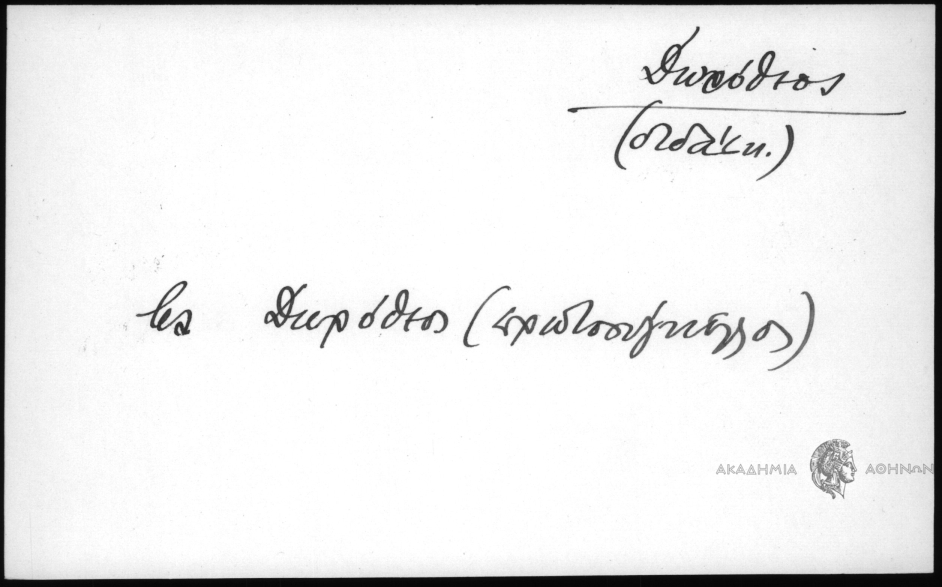 Δωρόθεος
(διδάκ.)
βλ Δωρόθεος (πρωτοσύγκελλος)
ΑΚΑΔΗΜΙΑ ΑΘΗΝΩΝ